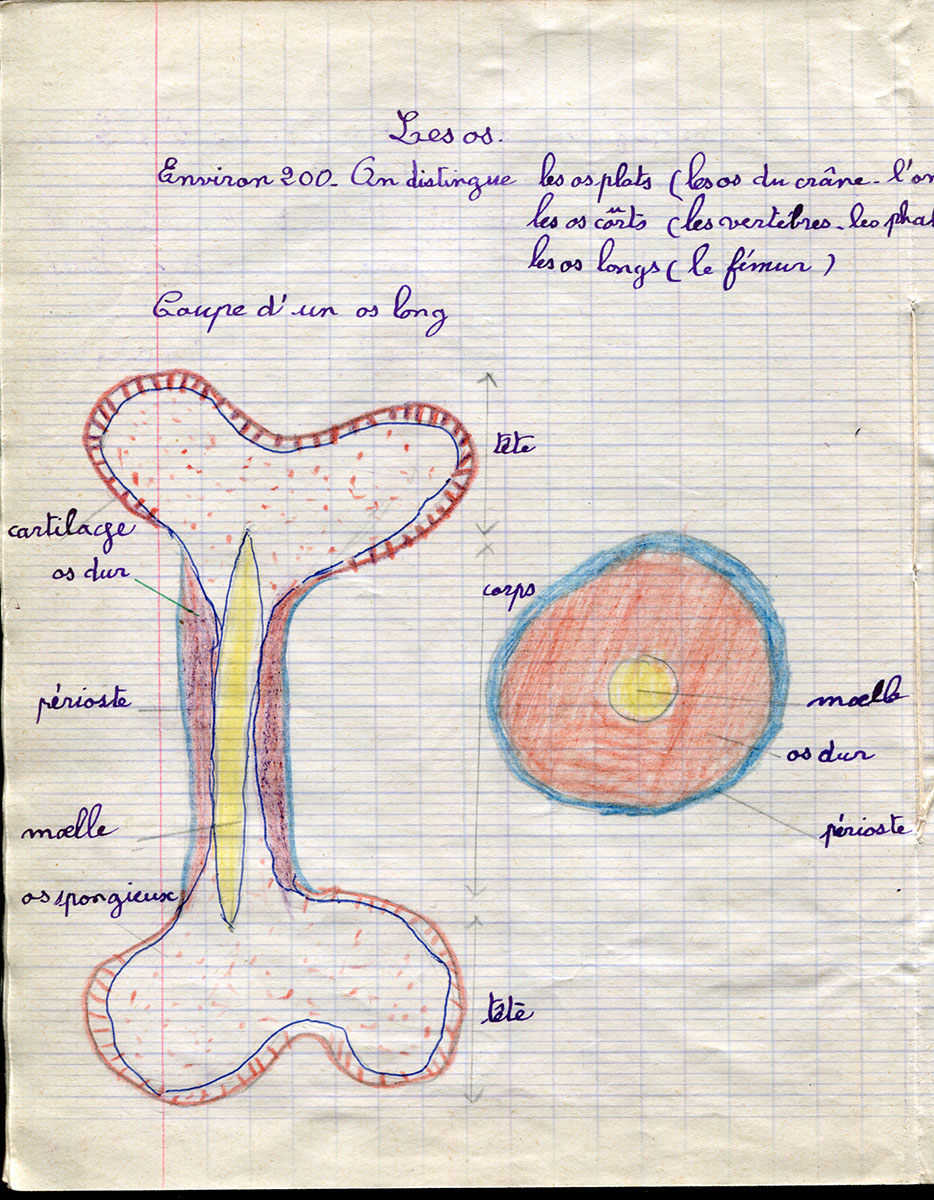 Les os.
Environ 200. On distingue les os plats (les os du crâne - l'om
les os coûrts (les vertèbres - les phal
les os longs (le fémur)
Coupe d'un os long
tête
cartilage
os dur
corps
périoste
moelle
os dur
moelle
périoste
os spongieux
tête